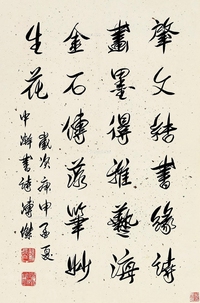 肇文書緣詩
畫墨得雅藝海
金石傳筆妙
生花
歲次庚申孟夏
中澣書 溥傑